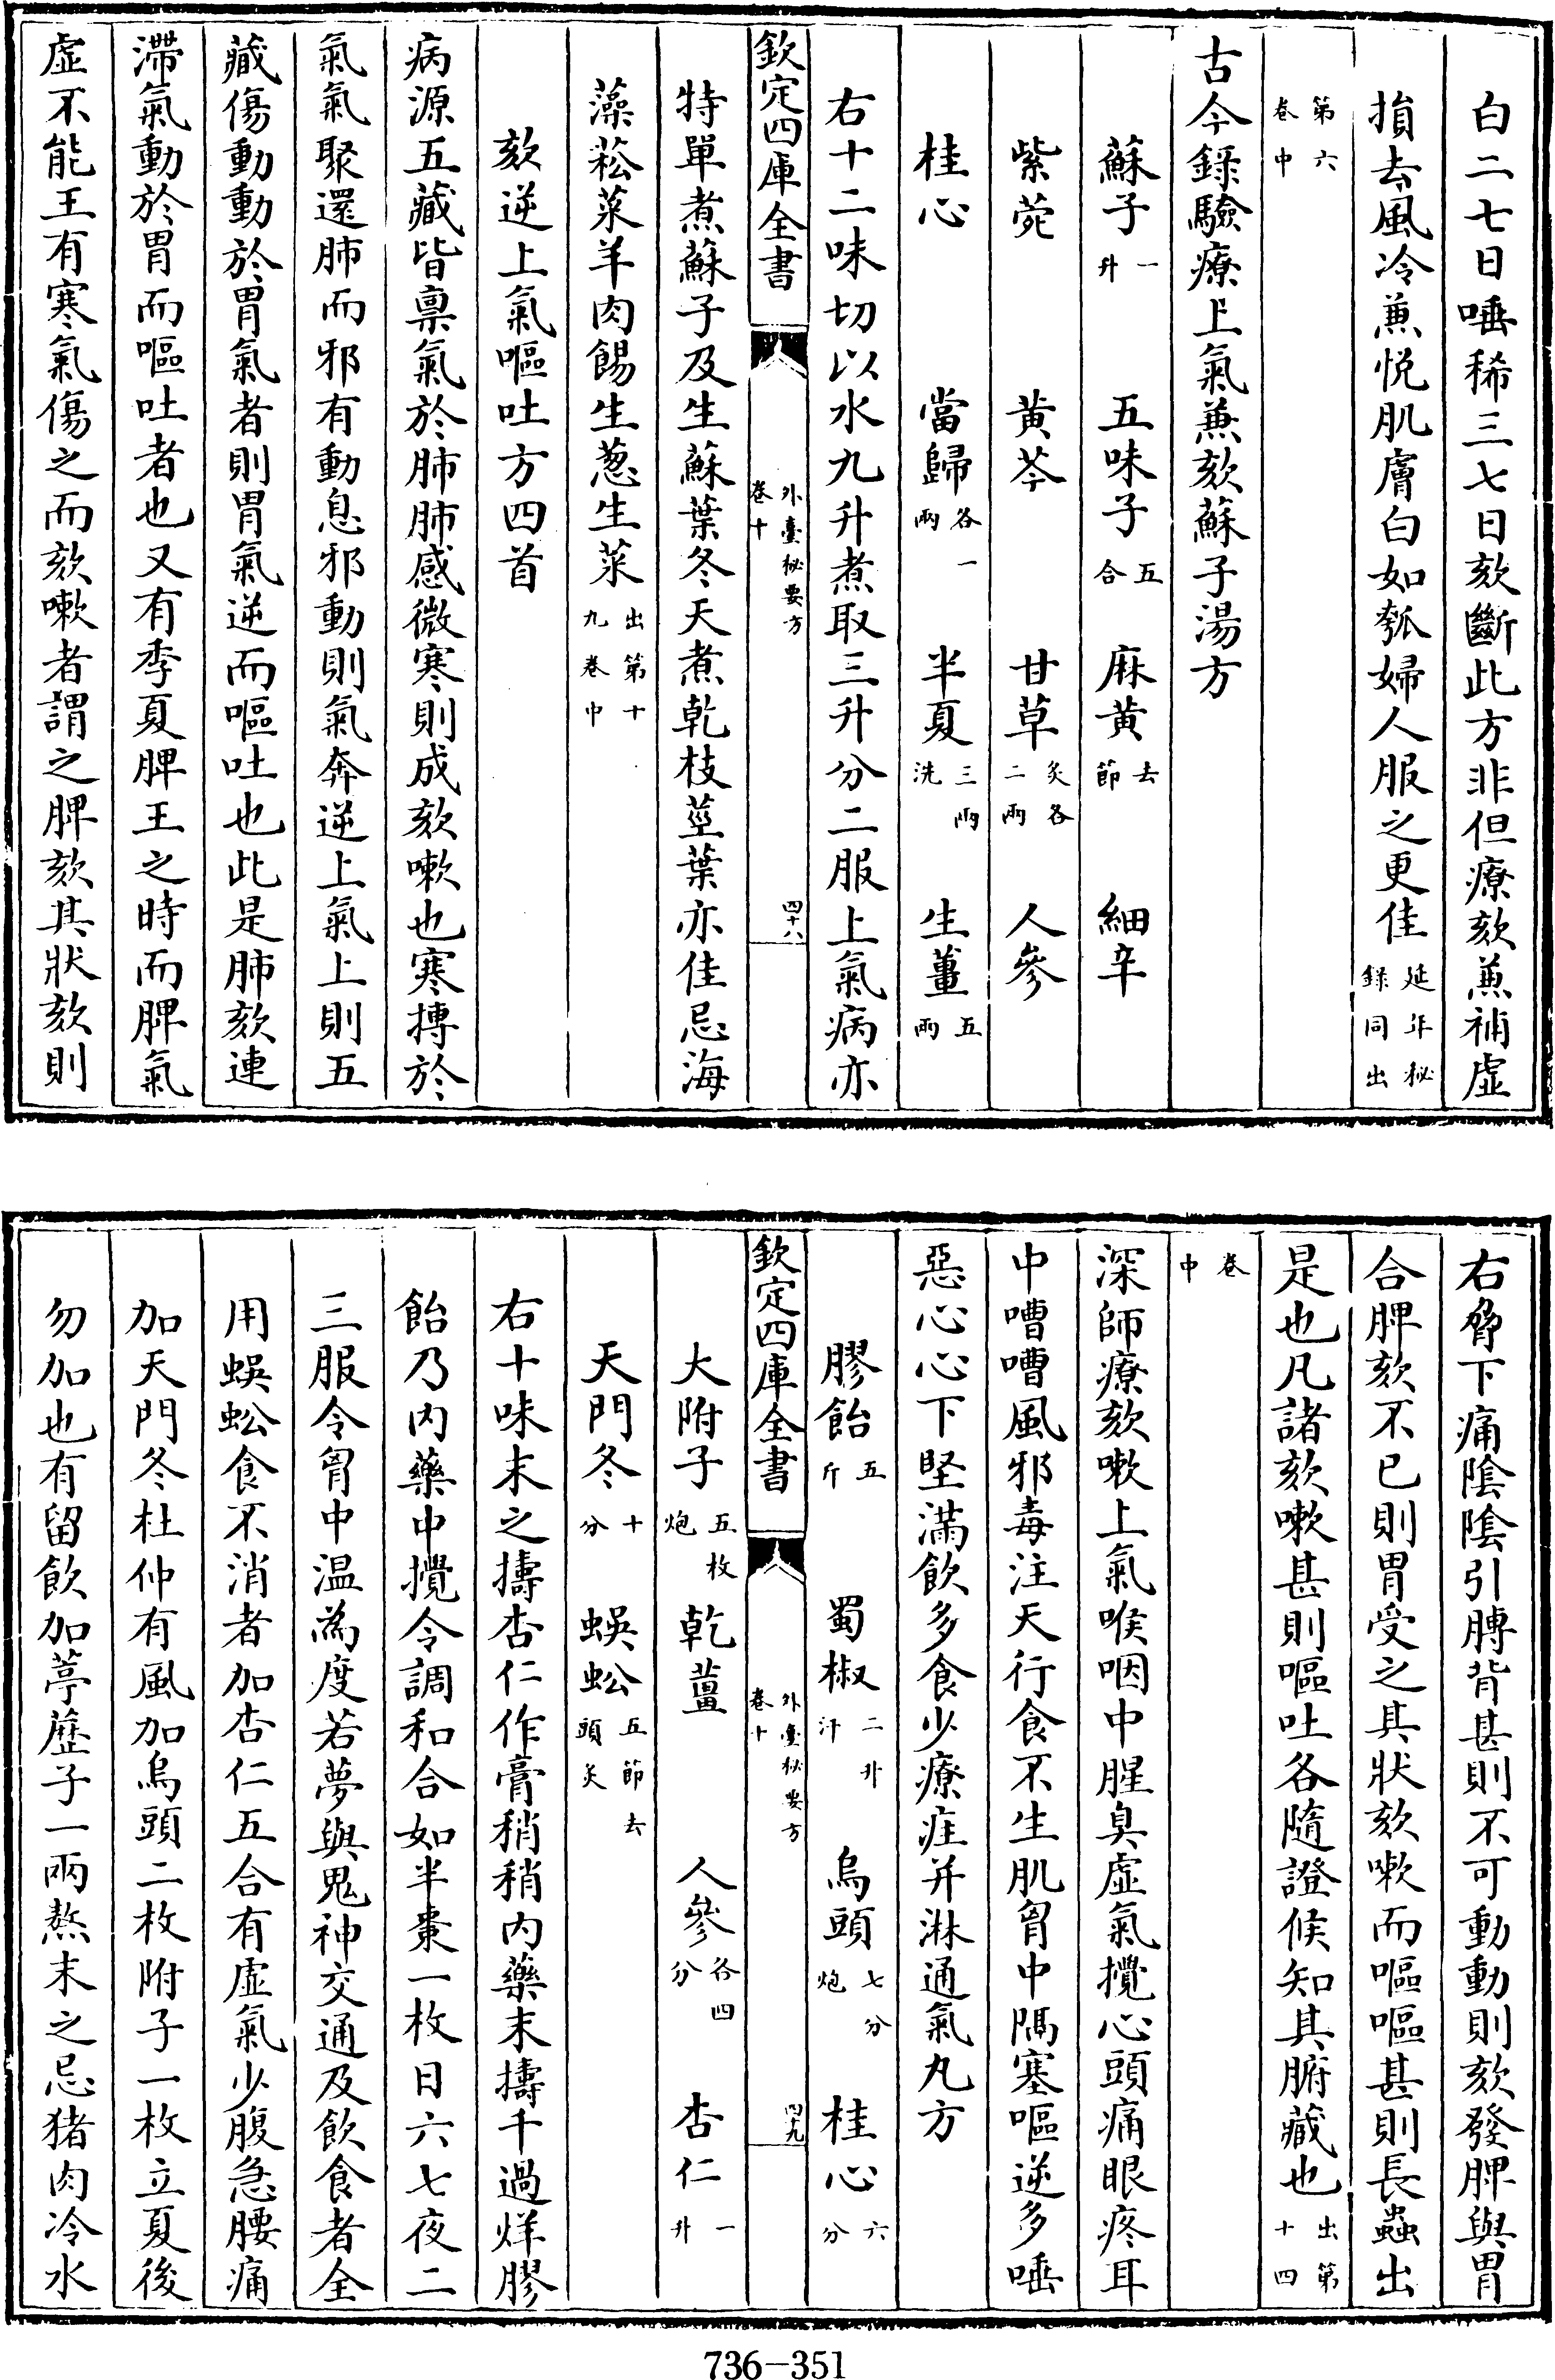 白二七日唾稀三七日欬斷此方非但療欬兼補虛
損去風冷兼悅肌膚白如瓠婦人服之更佳延年秘録同出
第六卷中
古今録驗療上氣兼欬蘇子湯方
蘇子一升 五味子五合 麻黄去節 細辛
紫菀 黄芩 甘草炙各二兩 人參
桂心 當歸各一兩 半夏三兩洗 生薑五兩
右十二味切以水九升煮取三升分二服上氣病亦
欽定四庫全書 外臺秘要方卷十 四十八
特單煮蘇子及生蘇葉冬天煮乾枝莖葉亦佳忌海
藻菘菜羊肉餳生葱生菜出第十九卷中
欬逆上氣嘔吐方四首
病源五藏皆禀氣於肺肺感微寒則成欬嗽也寒搏於
氣氣聚還肺而邪有動息邪動則氣奔逆上氣上則五
藏傷動動於胃氣者則胃氣逆而嘔吐也此是肺欬連
滯氣動於胃而嘔吐者也又有季夏脾王之時而脾氣
虛不能王有寒氣傷之而欬嗽者謂之脾欬其狀欬則
右脅下痛隂隂引膊背甚則不可動動則欬發脾與胃
合脾欬不已則胃受之其狀欬嗽而嘔嘔甚則長蟲出
是也凡諸欬嗽甚則嘔吐各隨證候知其腑藏也出第十四
卷中
深師療欬嗽上氣喉咽中腥臭虛氣攪心頭痛眼疼耳
中嘈嘈風邪毒注天行食不生肌胷中隔塞嘔逆多唾
惡心心下堅滿飲多食少療疰并淋通氣丸方
膠飴五斤 蜀椒二升汗 烏頭七分炮 桂心六分
欽定四庫全書 外臺秘要方卷十 四十九
大附子五枚炮 乾薑 人參各四分 杏仁一升
天門冬十分 蜈蚣五節去頭炙
右十味末之擣杏仁作膏稍稍内藥末擣千過烊膠
飴乃内藥中攪令調和合如半棗一枚日六七夜二
三服令胷中温為度若夢與鬼神交通及飲食者全
用蜈蚣食不消者加杏仁五合有虛氣少腹急腰痛
加天門冬杜仲有風加烏頭二枚附子一枚立夏後
勿加也有留飲加葶藶子一兩熬末之忌猪肉冷水
736-351